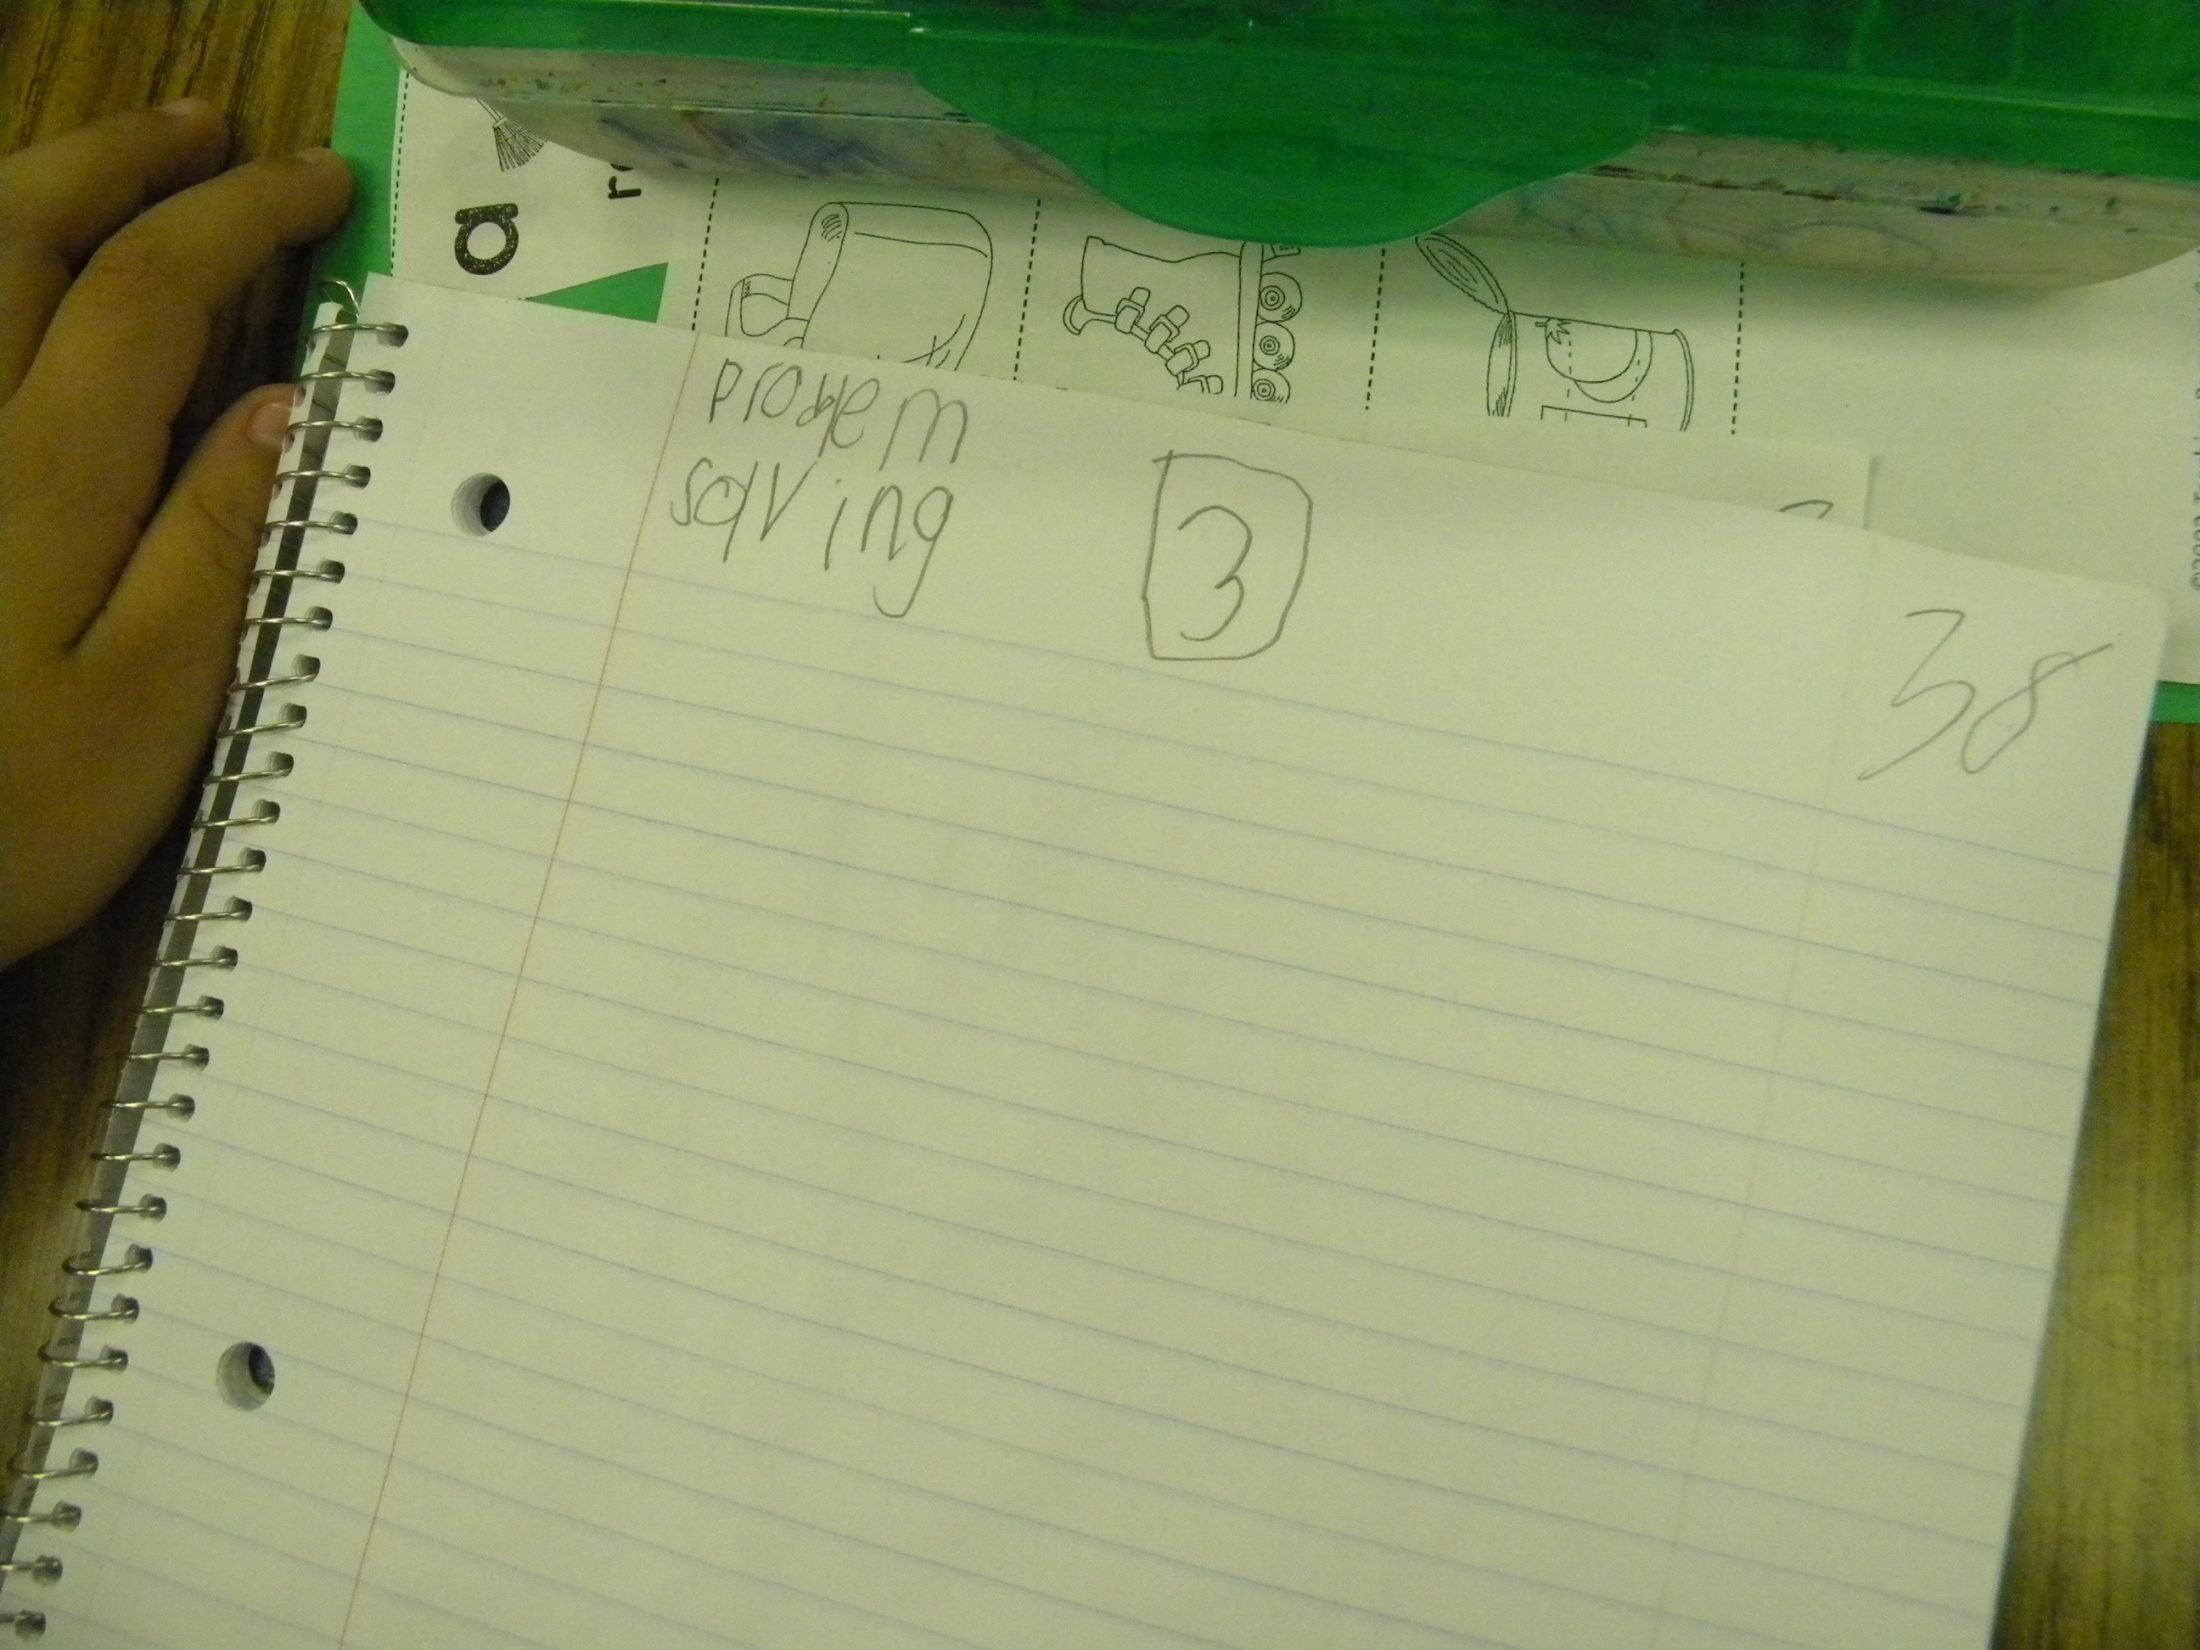 a
problem
solving
3
38